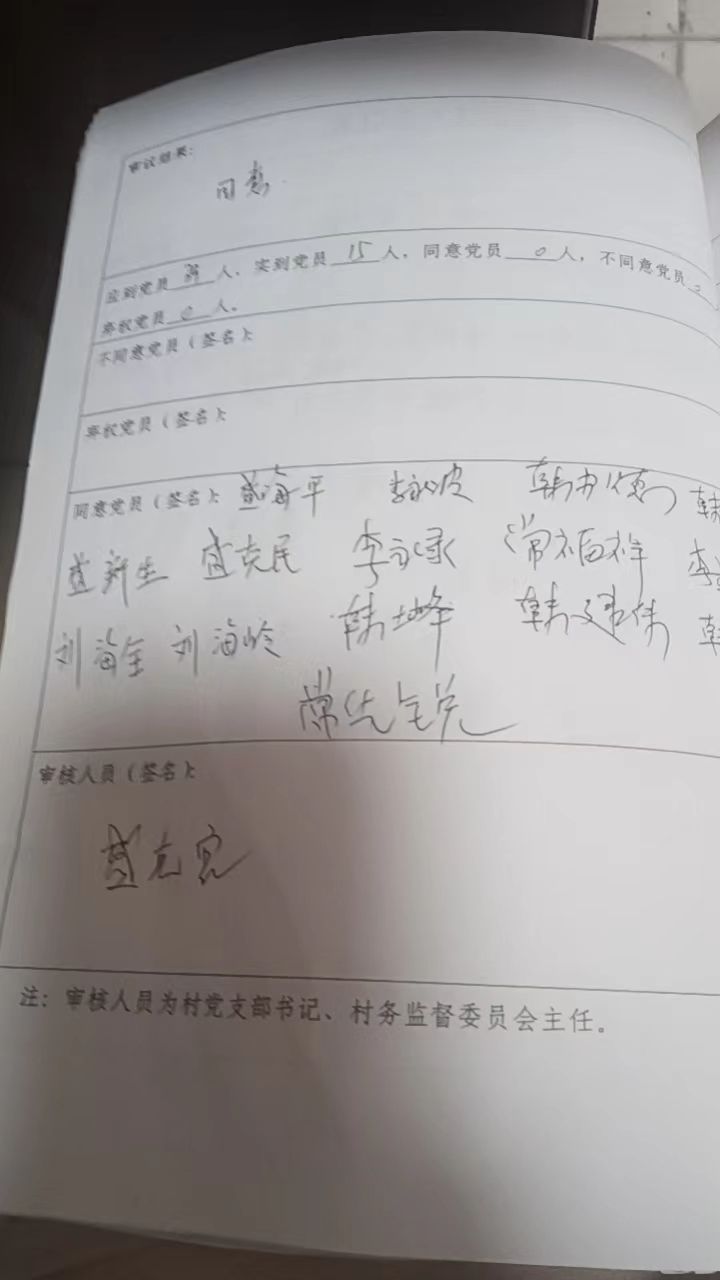 审议结果：
同意
应到党员 人，实到党员 15 人，同意党员 0 人，不同意党员
弃权党员 0 人。
不同意党员（签名）：
弃权党员（签名）：
同意党员（签名）：盛海平 李永波 韩 韩
盛新生 盛克民 李永录 常福祥 李
刘海全 刘海岭 韩 峰 韩建伟 韩
常
审核人员（签名）：
盛克宽
注：审核人员为村党支部书记、村务监督委员会主任。